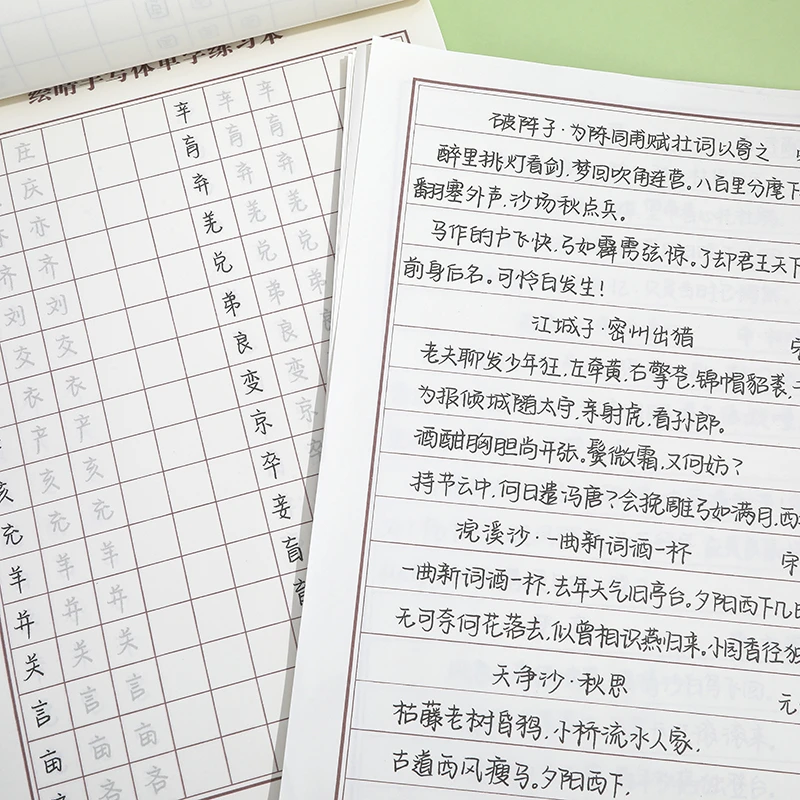 绘哈手写体单字练习本
辛 辛 辛
庄 肓 肓 肓
庆 弃 弃 弃
亦 羌 羌 羌
齐 齐 兑 兑 兑
刘 刘 弟 弟 弟
交 交 良 良 良
衣 衣 变 变
产 产 京 京
亥 亥 亥 卒 卒
充 充 充 妾
羊 羊 羊 盲
并 并 并 育
关 关 关
言 言 言
亩 亩 亩
吝 吝
破阵子·为陈同甫赋壮词以寄之
醉里挑灯看剑,梦回吹角连营。八百里分麾下
翻塞外声,沙场秋点兵。
马作的卢飞快,弓如霹雳弦惊。了却君王天下
前身后名。可怜白发生!
江城子·密州出猎 宋
老夫聊发少年狂,左牵黄,右擎苍,锦帽貂裘,千
为报倾城随太守,亲射虎,看孙郎。
酒酣胸胆尚开张。鬓微霜,又何妨?
持节云中,何日遣冯唐?会挽雕弓如满月,西
浣溪沙·一曲新词酒一杯 宋
一曲新词酒一杯,去年天气旧亭台。夕阳西下几时
无可奈何花落去,似曾相识燕归来。小园香径独
天净沙·秋思 元
枯藤老树昏鸦,小桥流水人家,
古道西风瘦马。夕阳西下,